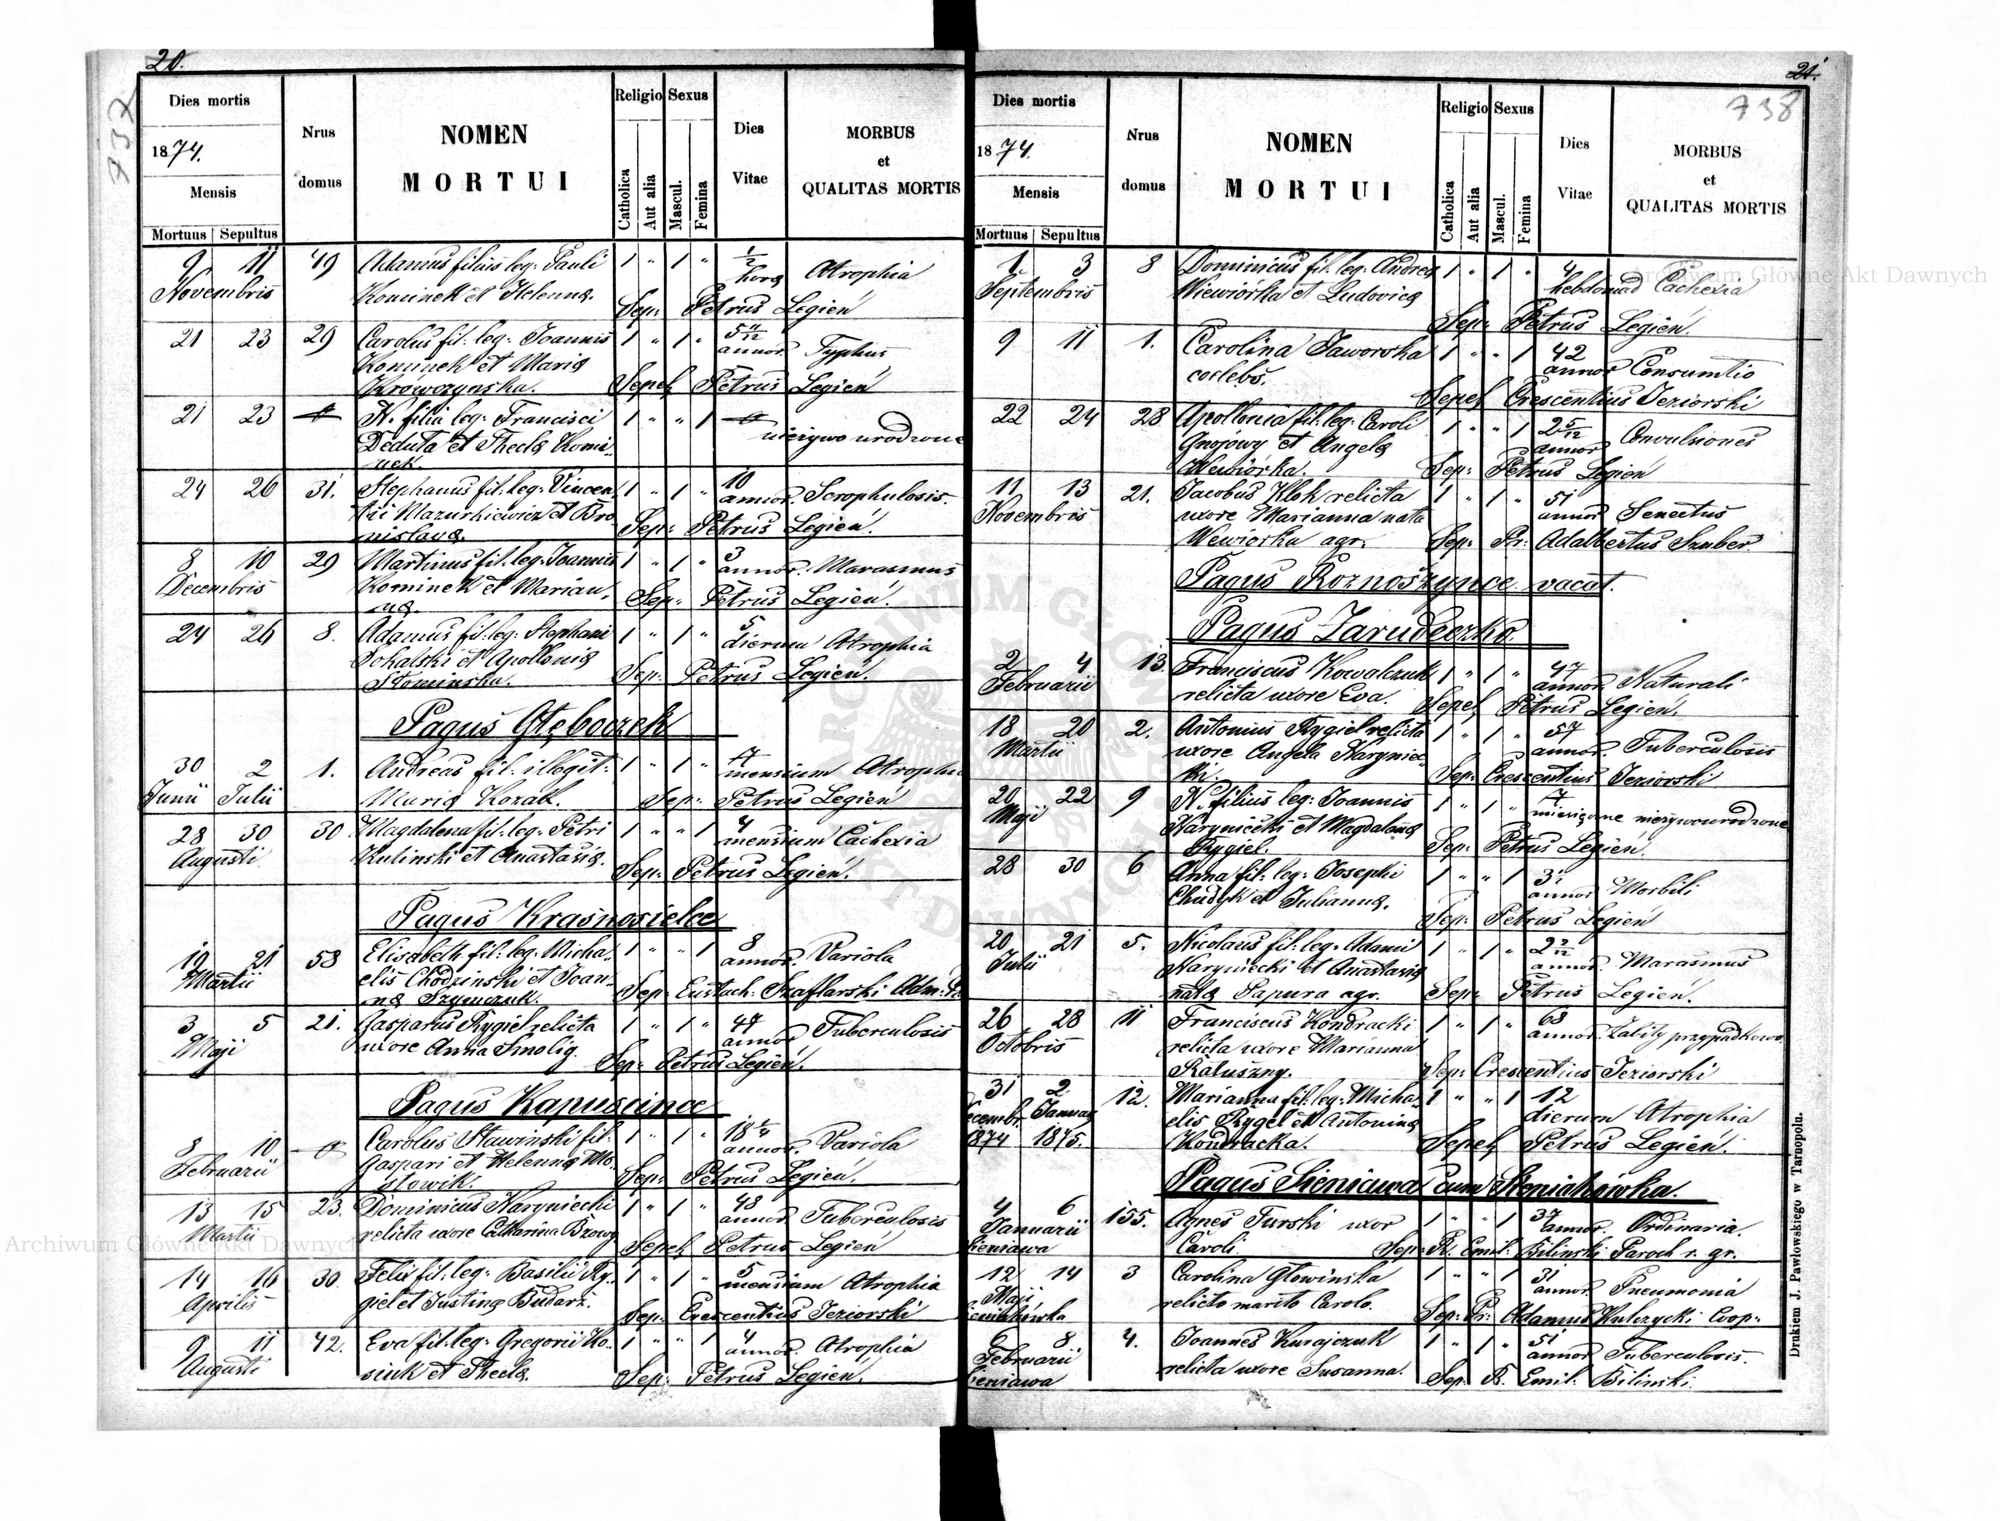 20.
737
Dies mortis
1874.
Mensis
Mortuus Sepultus
Nrus
domus
NOMEN
MORTUI
Religio
Catholica
Aut alia
Sexus
Mascul.
Femina
Dies
Vitae
MORBUS
et
QUALITAS MORTIS
9 11 49 Adamus filius leg: Pauli 1 " 1 " 1/2
Novembris Kominek et Helena. hora Atrophia
Sep: Petrus Legień
21 23 29 Carolus fil: leg: Joannis 1 " 1 " 5 11/12
Kominek et Maria annor. Typhus
Krówczynska. Sepel. Petrus Legień
21 23 N. filia leg: Francisci 1 " " 1
Deduta et Thecla Komi- nieżywo urodzone
nek.
24 26 31. Stephanus fil: leg: Vincen 1 " 1 " 10
tii Mazurkiewicz et Bro annor. Scrophulosis.
nislava. Sep: Petrus Legień.
8 10 29 Martinus fil: leg: Joannis 1 " 1 " 3
Decembris Kominek et Marian- annor. Marasmus
na. Sep: Petrus Legień.
24 26 8. Adamus fil: leg: Stephani 1 " 1 " 5
Sokalski et Apollonia dierum Atrophia
Słominska. Sep: Petrus Legień.
Pagus Głęboczek
30 2 1. Andreas fil: illegit: 1 " 1 "
Junii Julii Maria Kozak. mensium Atrophia
Sep: Petrus Legień
28 30 30 Magdalena fil: leg: Petri 1 " " 1 4
Augusti Kulinski et Anastasia. mensium Cachexia
Sep: Petrus Legień.
Pagus Krasnosielce
19 21 58 Elisabeth fil: leg: Micha- 1 " " 1 8
Martii elis Chodzinski et Joan- annor. Variola
na Szymczuk. Sep: Eustach: Szaflarski Adm:
3 5 21. Gasparus Rygiel relicta 1 " 1 " 47
Maji uxore Anna Smolig. annor Tuberculosis
Sep: Petrus Legień.
Pagus Kapuscince
8 10 Carolus Sławinski fil: 1 " 1 "
Februarii Gaspari et Helena Mo- annor. Variola
słowik. Sep: Petrus Legień.
13 15 23. Dominicus Naryniecki 1 " 1 " 48
Martii relicta uxore Catharina annor. Tuberculosis
Sepel. Petrus Legień
14 16 30. Felix fil: leg: Basilii Ry- 1 " 1 " 5
Aprilis giel et Justina Budarz. mensium Atrophia
Sep: Crescentius Jeziorski
9 11 42. Eva fil: leg: Gregorii Ko- 1 " " 1 4
Augusti siuk et Thecla. annor. Atrophia
Sep: Petrus Legień.
21.
738
Dies mortis
1874.
Mensis
Mortuus Sepultus
Nrus
domus
NOMEN
MORTUI
Religio
Catholica
Aut alia
Sexus
Mascul.
Femina
Dies
Vitae
MORBUS
et
QUALITAS MORTIS
1 3 8 Dominicus fil: leg: Andrea 1 " 1 " 4
Septembris Wiewiórka et Ludovica hebdomad Cachexia
Sep: Petrus Legień.
9 11 1. Carolina Jaworska 1 " " 1 42
coelebs. annor Consumtio
Sepel. Crescentius Jeziorski
22 24 28 Apollonia fil: leg: Caroli 1 " " 1 2 5/12
Gnojowy et Angela annor Convulsiones
Wewiórka. Sep: Petrus Legień
11 13 21. Jacobus Klok relicta 1 " 1 " 51
Novembris uxore Marianna nata annor Senectus
Wewiorka agr. Sep: Pr: Adalbertus Szuber.
Pagus Roznoszynce vacat.
Pagus Zarudeczko.
2 4 13. Franciscus Kowalczuk 1 " 1 " 47
Februarii relicta uxore Eva. annor. Naturali
Sepel. Petrus Legień.
18 20 2. Antonius Rygiel relicta 1 " 1 " 57
Martii uxore Angela Naryniec- annor. Tuberculosis
ki. Sep: Crescentius Jeziorski
20 22 9 N. filius leg: Joannis 1 " 1 " 7
Maji Naryniecki et Magdalena miesięczne nieżywourodzone
Rygiel. Sep: Petrus Legień.
28 30 6 Anna fil: leg: Josephi 1 " " 1
Chudyk et Julianna. annor Morbili
Sep: Petrus Legień
20 21 5. Nicolaus fil: leg: Adami 1 " 1 "
Julii Naryniecki et Anastasia annor. Marasmus
nata Sapura agr. Sep: Petrus Legień.
26 28 11 Franciscus Kondracki 1 " 1 " 63
Octobris relicta uxore Marianna annor. Zabity przypadkowo.
Ratuszny. Sep: Crescentius Jeziorski
31 2 12. Marianna fil: leg: Micha- 1 " " 1 12
Decembr. Januar elis Rygel et Antonina dierum Atrophia
1874 1875. Kondracka. Sepel. Petrus Legień.
Pagus Sieniawa cum Sieniakówka.
4 6 155. Agnes Turski uxor 1 " " 1 37
Januarii Caroli. annor. Ordinaria.
Sieniawa Sep: R. Emil: Bilinski Paroch r. gr.
12 14 3 Carolina Głowinska 1 " " 1 31
Maji relicto marito Carolo. annor. Pneumonia
Sieniakówka Sep: Pr: Adamus Kulczycki Coop:
6 8 4. Joannes Kurajczuk 1 " 1 " 51
Februarii relicta uxore Susanna. annor Tuberculosis.
Sieniawa Sep: R. Emil: Bilinski.
Drukiem J. Pawłowskiego w Tarnopolu.
Archiwum Główne Akt Dawnych
Archiwum Główne Akt Dawnych
ARCHIWUM GŁÓWNE AKT DAWNYCH